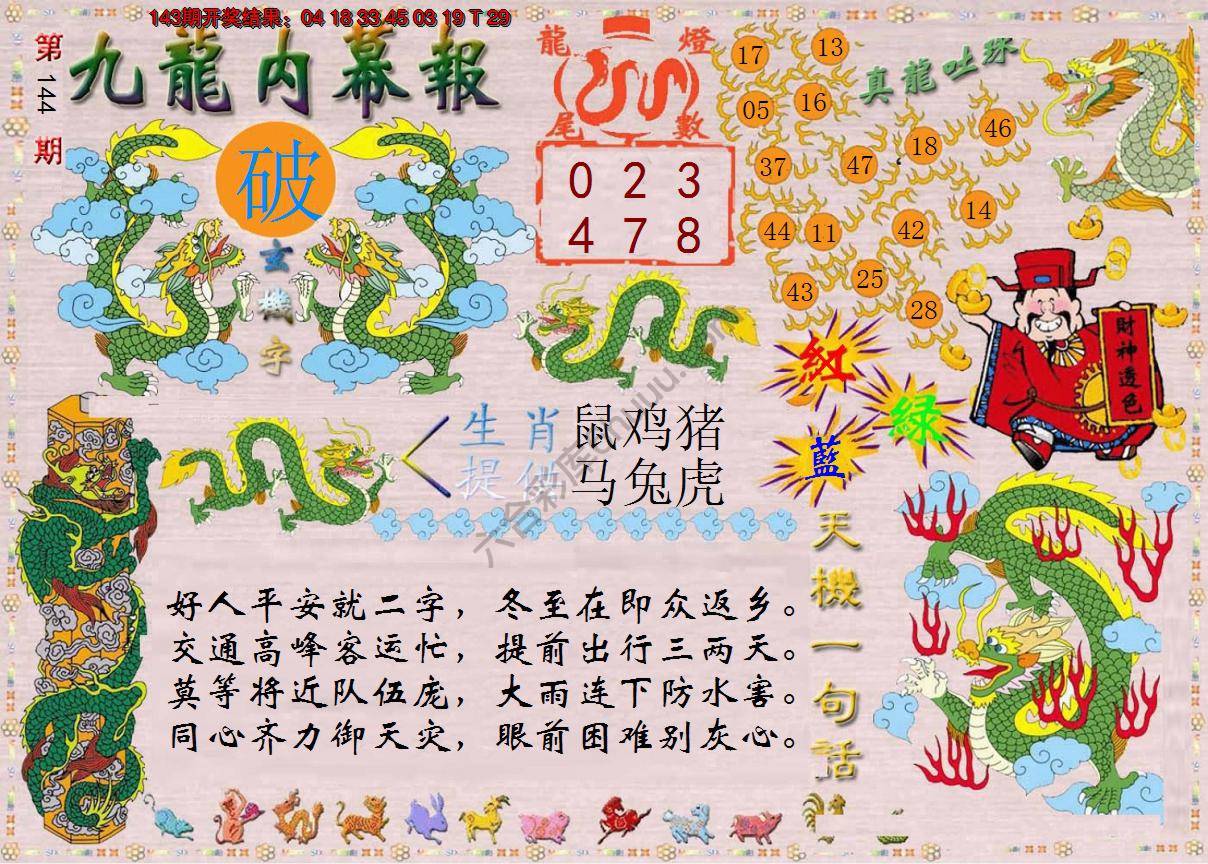 143期开奖结果：04 18 33 45 03 19 T 29
第144期
九龍内幕報
破
玄機字
龍燈
尾數
0 2 3
4 7 8
真龍吐珠
17 13
05 16
37 47 18 46
44 11 42 14
43 25 28
財神透色
紅
綠
藍
生肖 鼠鸡猪
提供 马兔虎
天機一句話
好人平安就二字，冬至在即众返乡。
交通高峰客运忙，提前出行三两天。
莫等将近队伍庞，大雨连下防水害。
同心齐力御天灾，眼前困难别灰心。